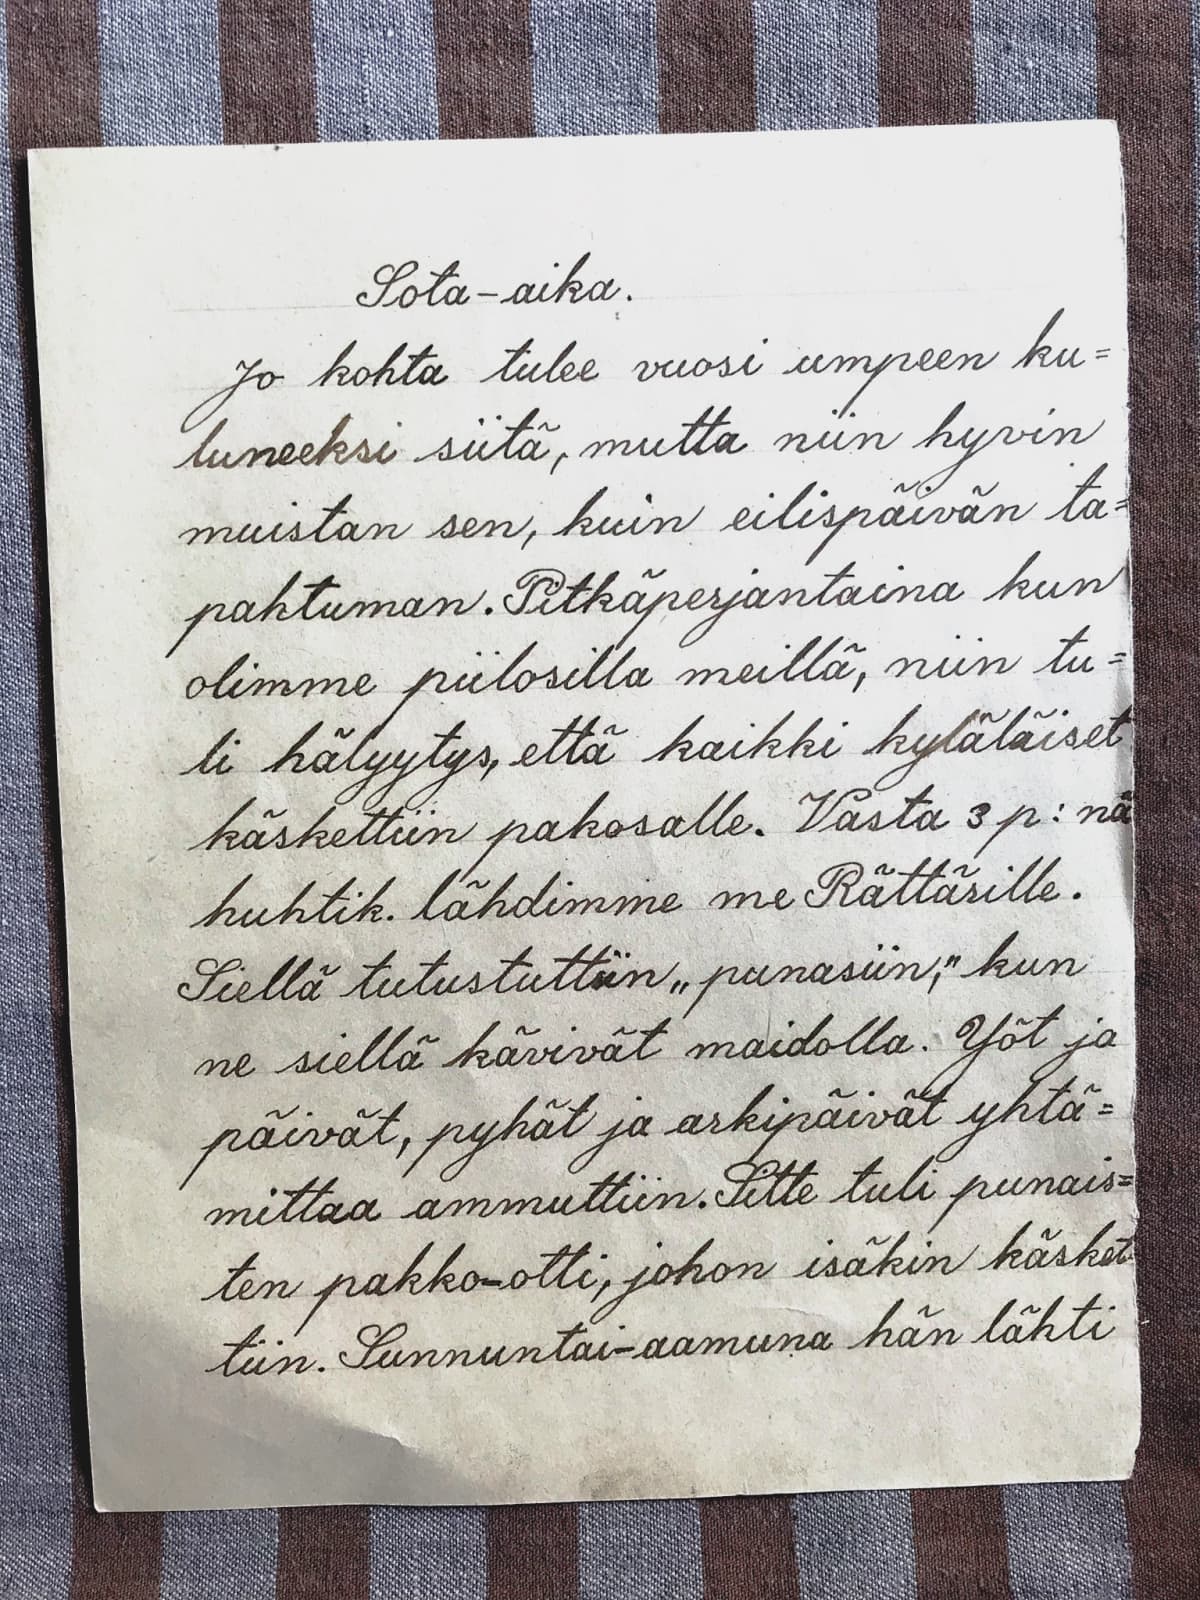 Sota-aika.
Jo kohta tulee vuosi umpeen ku=
luneeksi siitä, mutta niin hyvin
muistan sen, kuin eilispäivän ta=
pahtuman. Pitkäperjantaina kun
olimme piilosilla meillä, niin tu=
li hälyytys, että kaikki kyläläiset
käskettiin pakosalle. Vasta 3 p: nä
huhtik. lähdimme me Rättärille.
Siellä tutustuttiin „punasiin," kun
ne siellä kävivät maidolla. Yöt ja
päivät, pyhät ja arkipäivät yhtä=
mittaa ammuttiin. Sitte tuli punais=
ten pakko-otti, johon isäkin käsket-
tiin. Sunnuntai-aamuna hän lähti